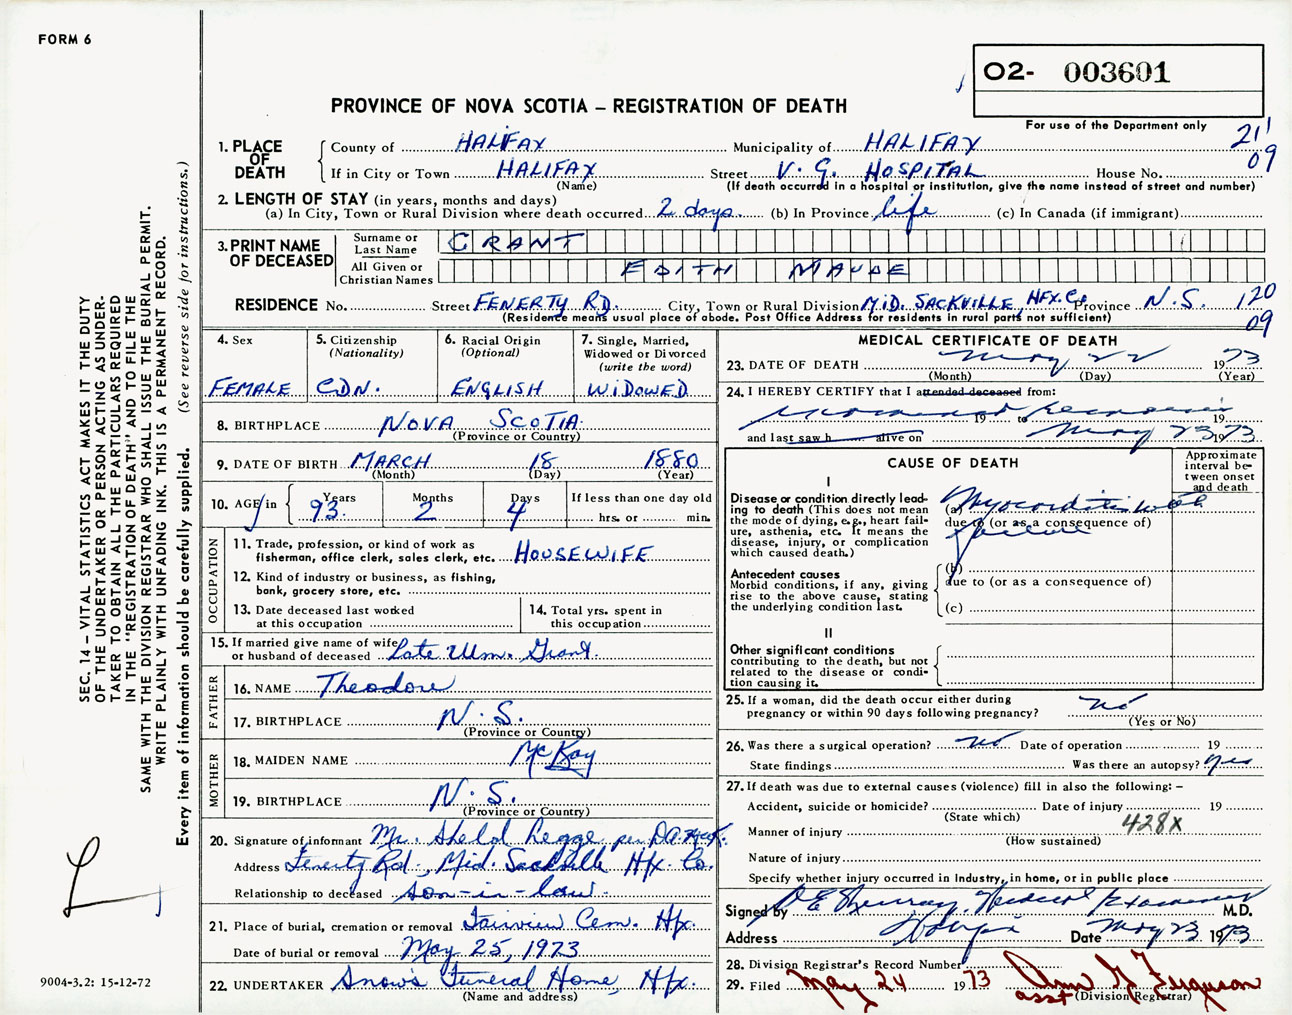 FORM 6
O2- 003601
PROVINCE OF NOVA SCOTIA – REGISTRATION OF DEATH
For use of the Department only
211
09
1. PLACE OF DEATH
County of HALIFAX Municipality of HALIFAX
If in City or Town HALIFAX Street V. G. HOSPITAL House No.
(Name) (If death occurred in a hospital or institution, give the name instead of street and number)
2. LENGTH OF STAY (in years, months and days)
(a) In City, Town or Rural Division where death occurred 2 days. (b) In Province life (c) In Canada (if immigrant)
3. PRINT NAME OF DECEASED
Surname or Last Name GRANT
All Given or Christian Names EDITH MAUDE
RESIDENCE No. Street FENERTY RD. City, Town or Rural Division MID. SACKVILLE, HFX. Co. Province N.S. 120
(Residence means usual place of abode. Post Office Address for residents in rural parts not sufficient) 09
4. Sex FEMALE
5. Citizenship (Nationality) CDN.
6. Racial Origin (Optional) ENGLISH
7. Single, Married, Widowed or Divorced (write the word) WIDOWED
8. BIRTHPLACE NOVA SCOTIA
(Province or Country)
9. DATE OF BIRTH MARCH 18 1880
(Month) (Day) (Year)
10. AGE in Years 93 Months 2 Days 4 If less than one day old
hrs. or min.
OCCUPATION
11. Trade, profession, or kind of work as fisherman, office clerk, sales clerk, etc. HOUSEWIFE
12. Kind of industry or business, as fishing, bank, grocery store, etc.
13. Date deceased last worked at this occupation
14. Total yrs. spent in this occupation
15. If married give name of wife or husband of deceased Late Wm. Grant.
FATHER
16. NAME Theodore
17. BIRTHPLACE N.S.
(Province or Country)
MOTHER
18. MAIDEN NAME McKay
19. BIRTHPLACE N.S.
(Province or Country)
20. Signature of informant Mr. Sheld Legge per
Address Fenerty Rd., Mid. Sackville Hfx Co.
Relationship to deceased son-in-law.
21. Place of burial, cremation or removal Fairview Cem. Hfx.
Date of burial or removal May 25, 1973
22. UNDERTAKER Snow's Funeral Home, Hfx.
(Name and address)
MEDICAL CERTIFICATE OF DEATH
23. DATE OF DEATH May 22 1973
(Month) (Day) (Year)
24. I HEREBY CERTIFY that I attended deceased from:
19 to 19
and last saw h alive on May 23 1973
CAUSE OF DEATH
Approximate interval between onset and death
I
Disease or condition directly leading to death (This does not mean the mode of dying, e.g., heart failure, asthenia, etc. It means the disease, injury, or complication which caused death.)
(a) Myocarditis with
due to (or as a consequence of)
failure
Antecedent causes
Morbid conditions, if any, giving rise to the above cause, stating the underlying condition last.
(b)
due to (or as a consequence of)
(c)
II
Other significant conditions
contributing to the death, but not related to the disease or condition causing it.
25. If a woman, did the death occur either during pregnancy or within 90 days following pregnancy? no
(Yes or No)
26. Was there a surgical operation? no Date of operation 19
State findings Was there an autopsy? yes
27. If death was due to external causes (violence) fill in also the following: –
Accident, suicide or homicide? Date of injury 19
(State which)
428X
Manner of injury
(How sustained)
Nature of injury
Specify whether injury occurred in Industry, in home, or in public place
Signed by Medical Examiner M.D.
Address Date May 23 1973
28. Division Registrar's Record Number
29. Filed May 24 1973 Ferguson
asst (Division Registrar)
SEC. 14 – VITAL STATISTICS ACT MAKES IT THE DUTY
OF THE UNDERTAKER OR PERSON ACTING AS UNDER-
TAKER TO OBTAIN ALL THE PARTICULARS REQUIRED
IN THE "REGISTRATION OF DEATH" AND TO FILE THE
SAME WITH THE DIVISION REGISTRAR WHO SHALL ISSUE THE BURIAL PERMIT.
WRITE PLAINLY WITH UNFADING INK. THIS IS A PERMANENT RECORD.
Every item of information should be carefully supplied. (See reverse side for instructions.)
9004-3.2: 15-12-72